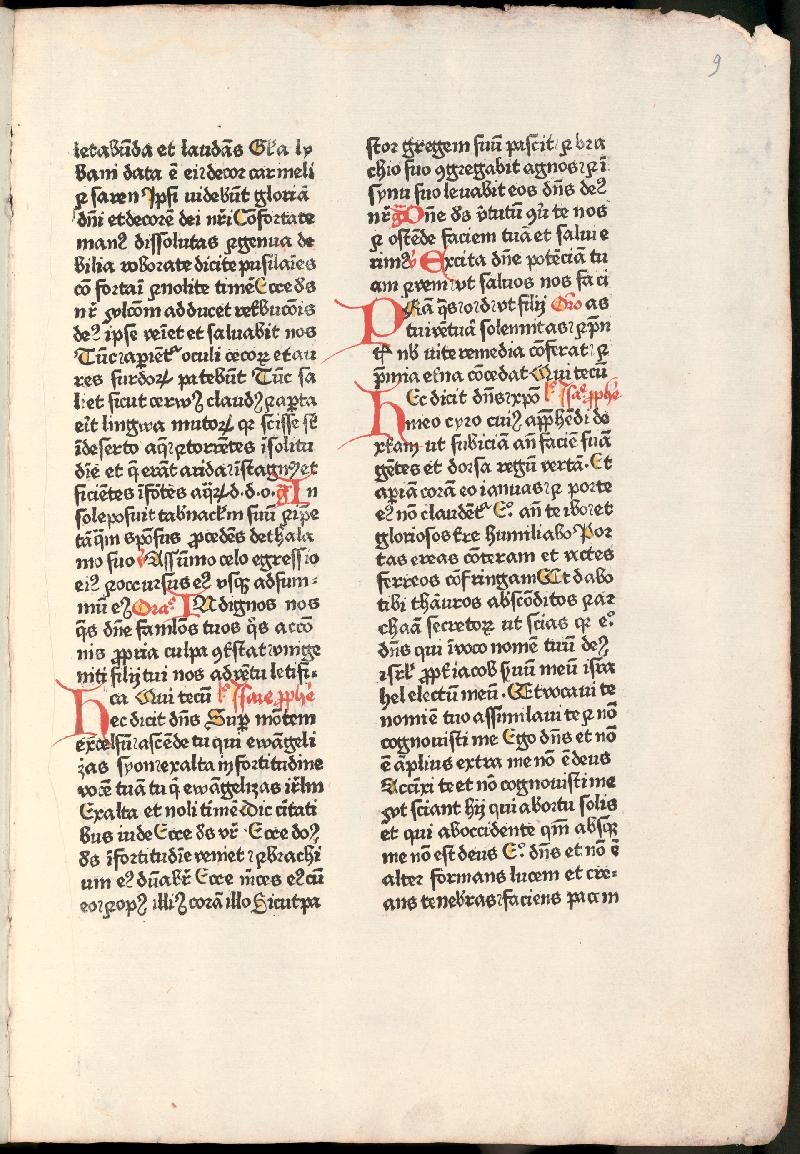 9
letabūda et laudās Gl̄a ly
bani data ē ei⁊decor carmeli
⁊ saron Ipsi uidebūt gloriā
dn̄i et decorē dei nr̄i Cōfortate
manꝰ dissolutas ⁊genua de
bilia roborate dicite pusilaīes
cō fortaī ⁊nolite timē Ecce ds̄
nr̄ ꝯlcōm adducet
deꝰ ipse veīet et saluabit nos
Tūc apiēt oculi cecoꝝ et au
res surdoꝝ patebūt Tūc sa
liet sicut cerwꝰ claudꝰ ⁊apta
eīt lingwa mutoꝝ qꝛ scisse st̄
ī deserto aq̄ ⁊torrētes ī solitu
dīe et q̄ erāt arida ī stagnū et
sicientes ī fōtes aq̄ꝝ d.d.o. g̃ In
sole posuit tab̄nackm̄ suū ⁊ip̄e
tāq̄m spōsus ꝓcedēs de thala
mo suo v̄ A sūmo celo egressio
eiꝰ ⁊occursus eiꝰ vsqꝫ ad sum-
mū eꝰ Ora. INdignos nos
q̄s dn̄e famlōs tuos q̄s accō
nis ꝓpria culpa ꝯtristat vnige
niti filij tui nos aduētu letifi-
ca Qui tecū Isaie ꝓphē
Hec dicit dn̄s Supꝛ mōtem
excelsū ascēde tu qui ewāgeli
zas syon exalta in fortitudine
vocē tuā tu q̄ ewāgelizas ir̄lm
Exalta et noli timē dic citati
bus iude Ecce ds̄ vr̄ Ecce doꝰ
ds̄ ī fortitudīe veniet ⁊brachi
um eꝰ dn̄abr̄ Ecce m̄ces eꝰ cū
eo ⁊opꝰ illiꝰ corā illo Sicut pa
stor gregem suū pascit ⁊ bra
chio suo ꝯgregabit agnos ⁊ ī
synu suo leuabit eos dn̄s deꝰ
nr̄ g̃ Dn̄e ds̄ v̄tutū ꝯū te nos
⁊ ostēde faciem tuā et salui e
rimꝰ v̄ Excita dn̄e potēciā tu
am ⁊vem vt saluos nos faci
as Oro
Pr̄a q̄s o ds̄ vt filij
tui vētura solennitas ⁊ p̄n
tis nb̄ uite remedia cōferat ⁊
p̄mia et̄na cōcedat Qui tecū
Hec dicit dn̄s xp̄o Isa. ꝓphē
meo cyro cuiꝰ app̄hēdi de
xt̄am ut subiciā an̄ faciē suā
gētes et dorsa regū vertā. Et
apiā corā eo ianuas ⁊ porte
eꝰ nō claudēt Eº an̄ te ibo et
gloriosos tr̄e humiliabo Por
tas ereas cōteram et vectes
ferreos cōfringam Et dabo
tibi thāuros abscōditos ⁊ar
chaā secretoꝝ ut scias qꝛ eº
dn̄s qui īvoco nomē tuū deꝰ
isrl̄ ꝓpt̄ iacob s̄uū meū isra
hel electū meū. Et vocaui te
nomiē tuo assimilaui te ⁊ nō
cognouisti me Ego dn̄s et nō
ē āplius extra me nō ē deus
Accīxi te et nō cognouisti me
⁊vt sciant hij qui ab ortu solis
et qui ab occidente qm̄ absqꝫ
me nō est deus Eº dn̄s et nō ē
alter formans lucem et cre-
ans tenebras faciens pacem